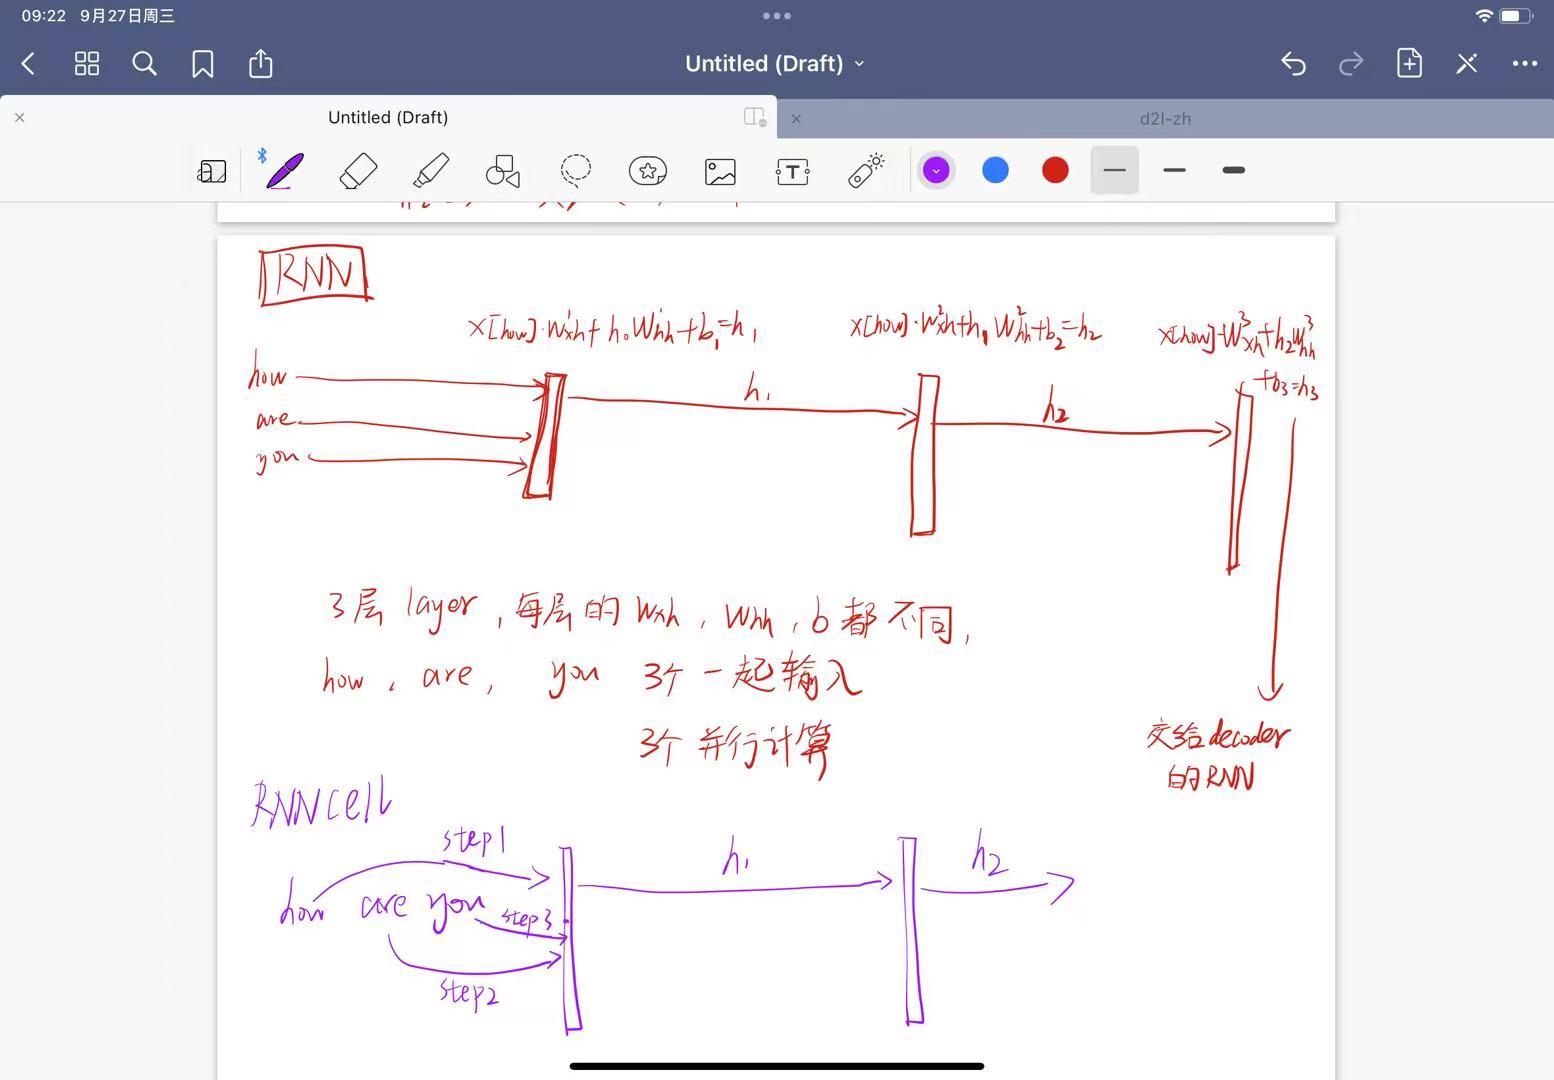 09:22 9月27日周三
Untitled (Draft)
Untitled (Draft)
d2l-zh
RNN
x[how]·W¹xh+h₀W¹hh+b₁=h₁
x[how]·W²xh+h₁W²hh+b₂=h₂
x[how]·W³xh+h₂W³hh
+b₃=h₃
how
are
you
h₁
h₂
3层 layer,每层的 Wxh, Whh, b 都不同,
how, are, you 3个一起输入
3个并行计算
交给decoder
的RNN
RNN cell
step1
how are you
step3
step2
h₁
h₂